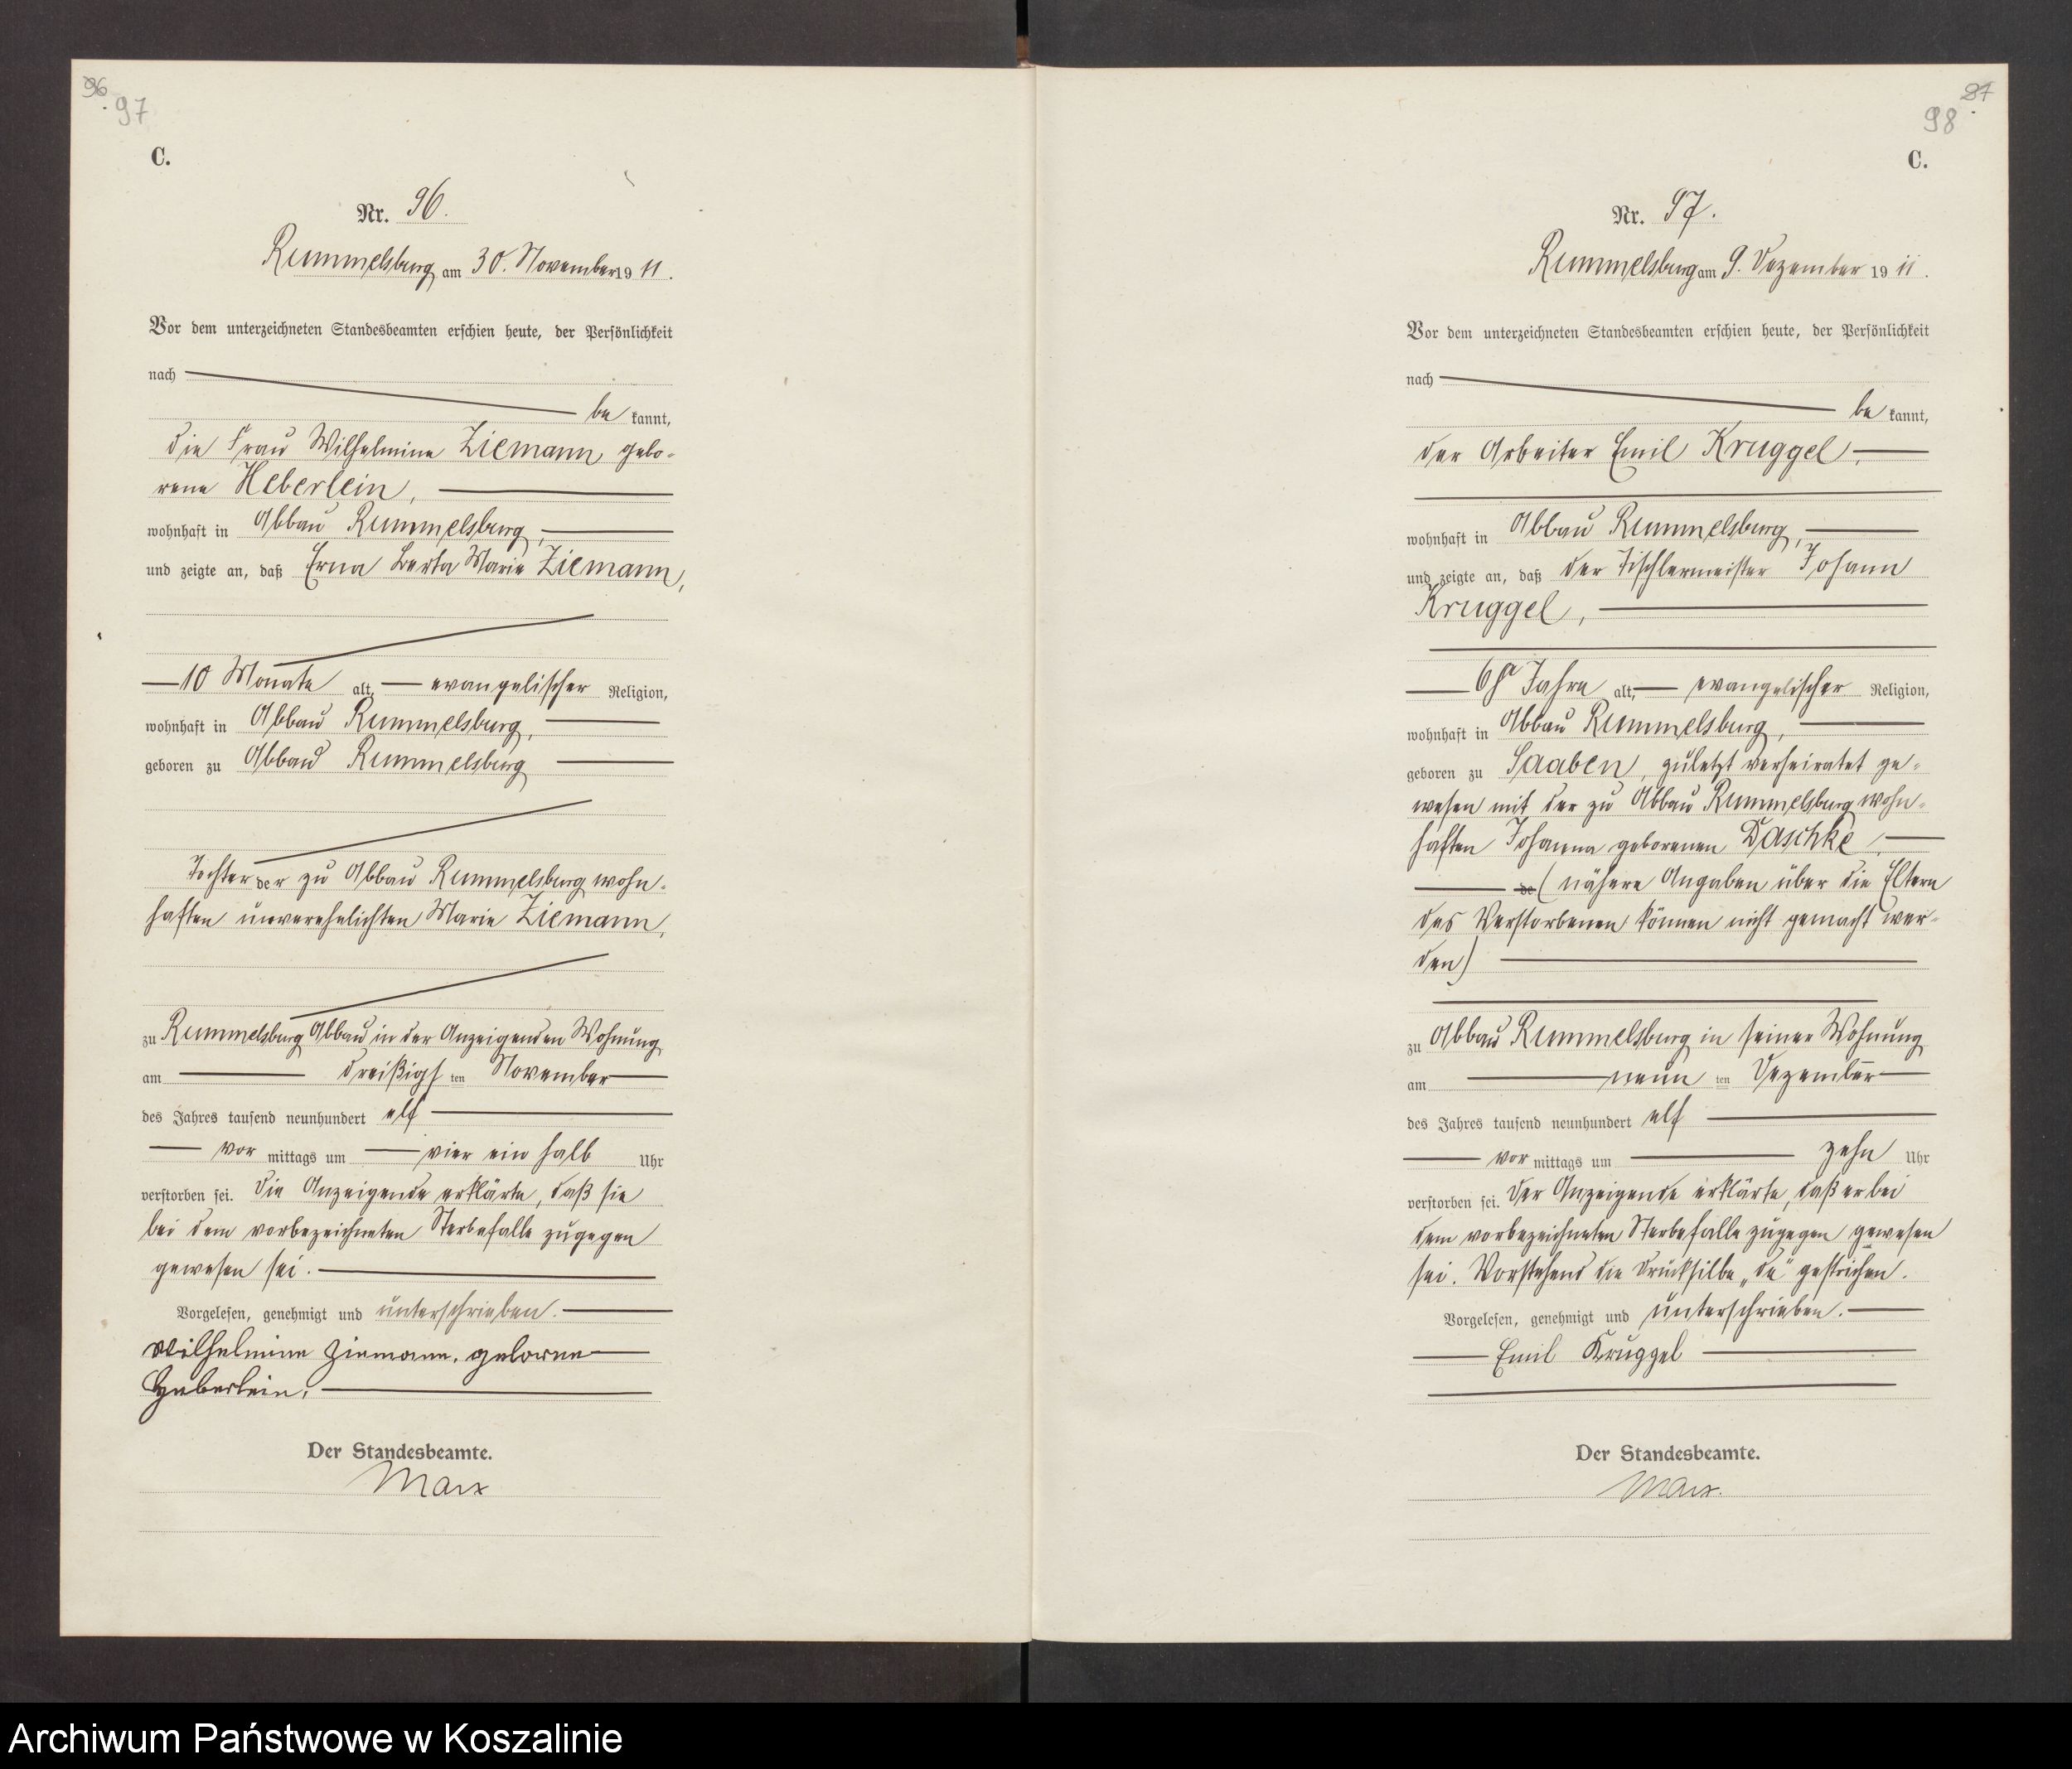 96
97
C.
Nr. 96.
Rummelsburg am 30. November 1911.
Vor dem unterzeichneten Standesbeamten erschien heute, der Persönlichkeit
nach
be kannt,
die Frau Wilhelmine Ziemann, gebo-
rene Heberlein,
wohnhaft in Abbau Rummelsburg,
und zeigte an, daß Erna Berta Marie Ziemann,
10 Monate alt, evangelischer Religion,
wohnhaft in Abbau Rummelsburg,
geboren zu Abbau Rummelsburg
Tochter der zu Abbau Rummelsburg wohn-
haften unverehelichten Marie Ziemann,
zu Rummelsburg Abbau in der Anzeigenden Wohnung
am dreißigsten November
des Jahres tausend neunhundert elf
vor mittags um vier ein halb Uhr
verstorben sei. Die Anzeigende erklärte, daß sie
bei dem vorbezeichneten Sterbefalle zugegen
gewesen sei.
Vorgelesen, genehmigt und unterschrieben.
Wilhelmine Ziemann, geborne
Heberlein.
Der Standesbeamte.
Marx
97
98
C.
Nr. 97.
Rummelsburg am 9. Dezember 1911.
Vor dem unterzeichneten Standesbeamten erschien heute, der Persönlichkeit
nach
be kannt,
der Arbeiter Emil Kruggel,
wohnhaft in Abbau Rummelsburg,
und zeigte an, daß der Tischlermeister Johann
Kruggel,
Jahre alt, evangelischer Religion,
wohnhaft in Abbau Rummelsburg,
geboren zu Saaben, zuletzt verheiratet ge-
wesen mit der zu Abbau Rummelsburg wohn-
haften Johanna geborenen Daschke,
de (nähere Angaben über die Eltern
des Verstorbenen können nicht gemacht wer-
den)
zu Abbau Rummelsburg in seiner Wohnung
am neun ten Dezember
des Jahres tausend neunhundert elf
vor mittags um zehn Uhr
verstorben sei. Der Anzeigende erklärte, daß er bei
dem vorbezeichneten Sterbefalle zugegen gewesen
sei. Vorstehend die Drucksilbe „de“ gestrichen.
Vorgelesen, genehmigt und unterschrieben.
Emil Kruggel
Der Standesbeamte.
Marx.
Archiwum Państwowe w Koszalinie